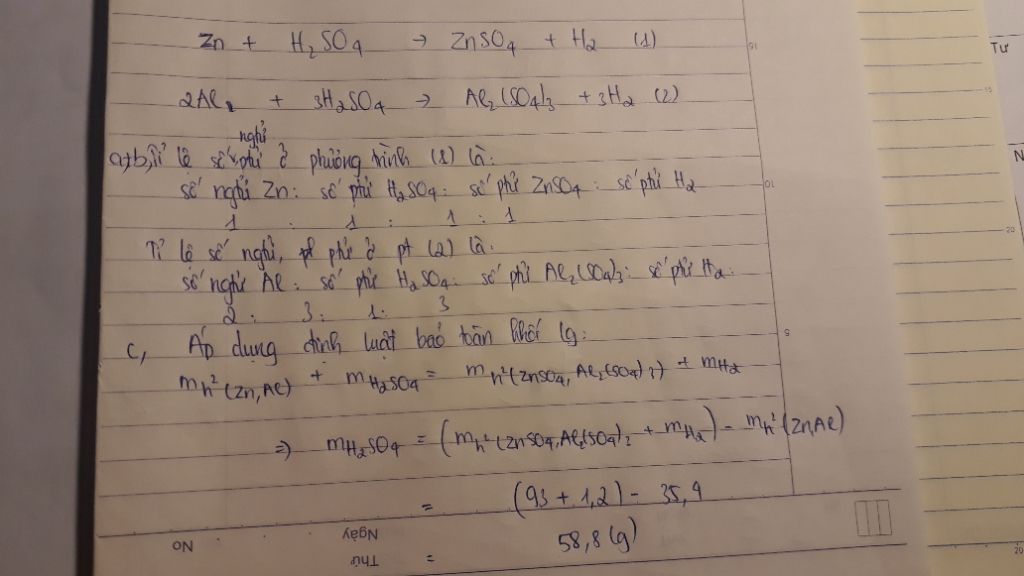 Zn + H2SO4 → ZnSO4 + H2 (1)
2Al + 3H2SO4 → Al2(SO4)3 + 3H2 (2)
nghử
a,b, Tỉ lệ số phử ở phương trình (1) là:
số nghử Zn: số phử H2SO4: số phử ZnSO4: số phử H2
1 : 1 : 1 : 1
Tỉ lệ số nghử, phử ở pt (2) là:
số nghử Al: số phử H2SO4: số phử Al2(SO4)3: số phử H2:
2: 3: 1: 3
c, Áp dụng định luật bảo toàn khối lg:
mh²(Zn,Al) + mH2SO4 = mh²(ZnSO4, Al2(SO4)3) + mH2
=> mH2SO4 = (mh²(ZnSO4,Al2(SO4)2 + mH2) - mh²(ZnAl)
= (93 + 1,2) - 35,4
= 58,8 (g)
Thứ
Ngày
No
Tư
N
15
10
5
15
20
20